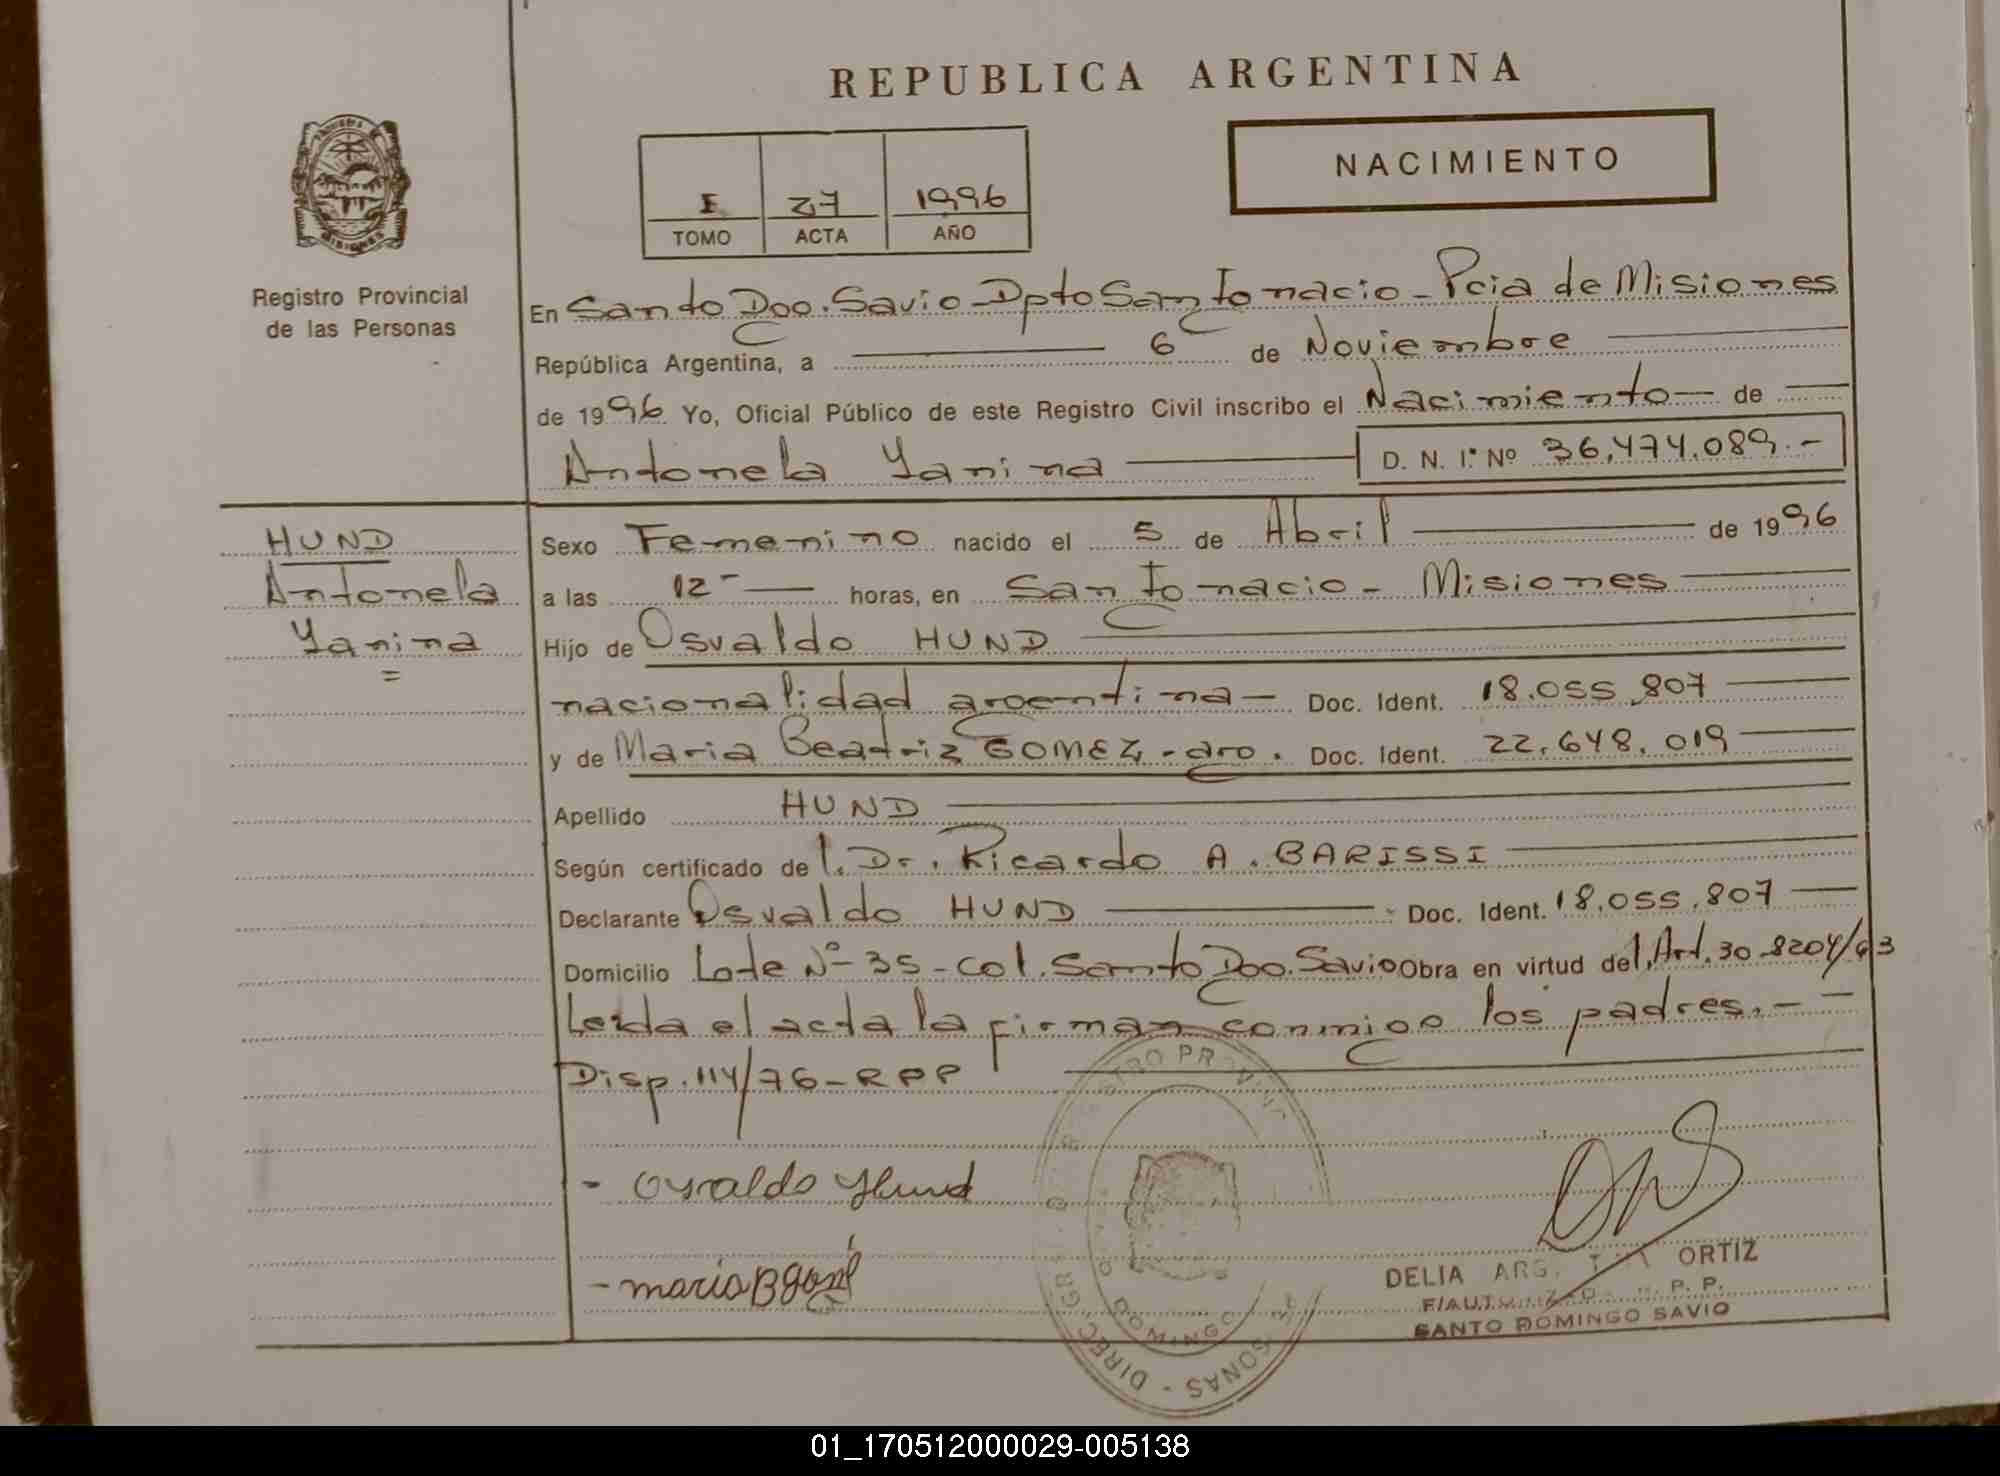 REPUBLICA ARGENTINA
NACIMIENTO
I 27 1996
TOMO ACTA AÑO
MISIONES
Registro Provincial
de las Personas
En Santo Dgo. Savio - Dpto San Ignacio - Pcia de Misiones
República Argentina, a 6 de Noviembre
de 1996 Yo, Oficial Público de este Registro Civil inscribo el Nacimiento de
Antonela Yanina D. N. I. Nº 36.474.089.-
HUND
Antonela
Yanina
=
Sexo Femenino nacido el 5 de Abril de 1996
a las 12 horas, en San Ignacio - Misiones
Hijo de Osvaldo HUND
nacionalidad argentina - Doc. Ident. 18.055.807
y de Maria Beatriz GOMEZ - arg. Doc. Ident. 22.648.019
Apellido HUND
Según certificado de l. Dr. Ricardo A. BARISSI
Declarante Osvaldo HUND Doc. Ident. 18.055.807
Domicilio Lote Nº 35 - Col. Santo Dgo. Savio Obra en virtud del Art. 30 - 8204/63
Leida el acta la firman conmigo los padres. - -
Disp. 114/76 - RPP
- Osvaldo Hund
- maria B gom
DELIA ORTIZ
SANTO DOMINGO SAVIO
01_170512000029-005138